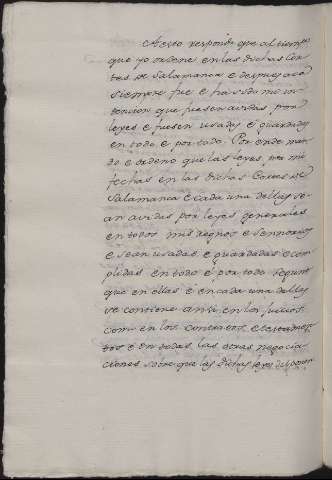 A esto respondo que al tiempo
que yo ordené en las dichas Cor-
tes de Salamanca e despues acá
siempre fue e ha sido mi in-
tencion que fuesen avidas por
leyes e fuesen usadas e guardadas
en todo e por todo. Por ende man-
do e ordeno que las leyes, por mi
fechas en las dichas Cortes de
Salamanca e cada una dellas se-
an avidas por leyes generales
en todos mis regnos e sennorios
e sean usadas e guardadas e com-
plidas en todo é por todo segunt
que en ellas é en cada una dellas
se contiene ansi en los juicios
como en los contratos, e testamen-
tos é en todas las otras negocia-
ciones sobre que las dichas leyes disponen